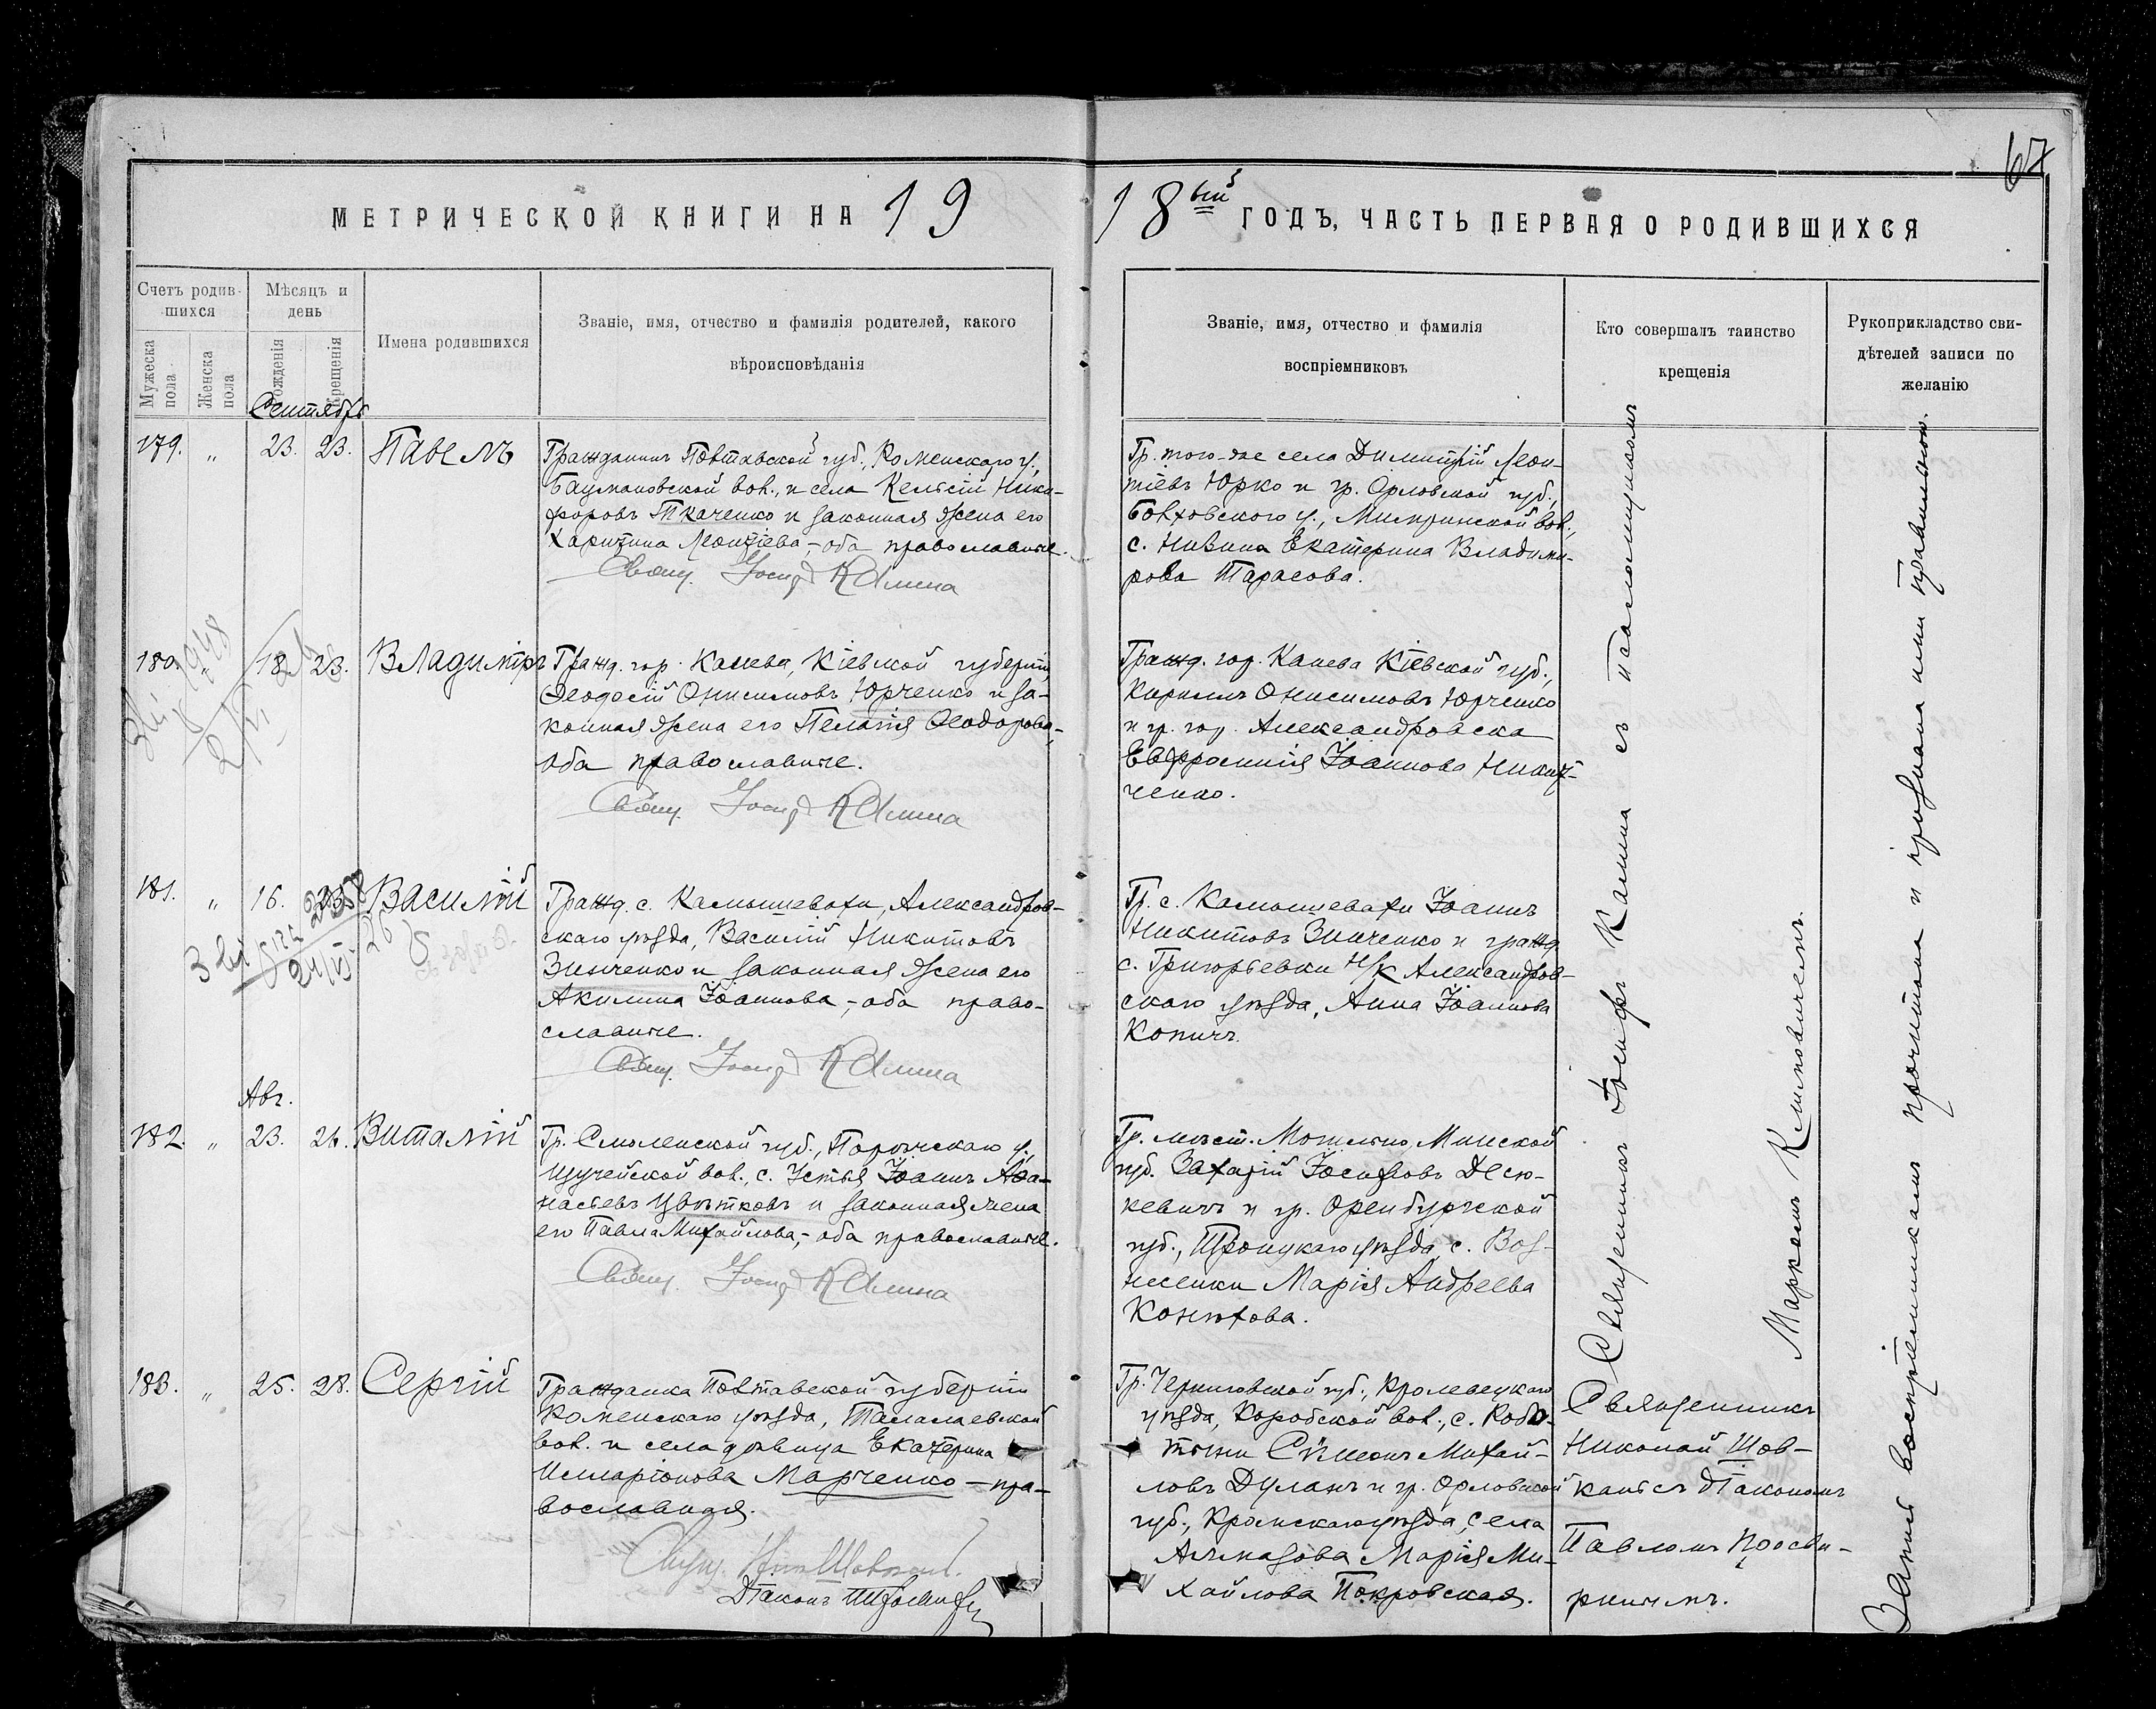 67
МЕТРИЧЕСКОЙ КНИГИ НА 19
18ый ГОДЪ, ЧАСТЬ ПЕРВАЯ О РОДИВШИХСЯ
Счетъ родив-
шихся
Мужеска
пола
Женска
пола
Мѣсяцъ и
день
Рожденія
Крещенія
Имена родившихся
Званіе, имя, отчество и фамилія родителей, какого
вѣроисповѣданія
Званіе, имя, отчество и фамилія
воспріемниковъ
Кто совершалъ таинство
крещенія
Рукоприкладство сви-
дѣтелей записи по
желанію
Сентябрь
179. " 23. 23. Павелъ
Гражданинъ Полтавской губ., Роменскаго у.,
вол., и села Ники-
форовъ Ткаченко и законная жена его
Харитина Леонтіева,- оба православные.
Свящ. Іосифъ Калина
Гр. того-же села Димитрій Леон-
тіевъ Юрко и гр. Орловской губ.,
Болховского у., вол.,
с. Екатерина Владими-
рова Тарасова.
180. " 18. 23. Владиміръ
Гражд. гор. Канева, Кіевской губерніи,
Ѳеодосій Онисимовъ Юрченко и за-
конная жена его Пелагія Ѳеодорова,-
оба православные.
Свящ. Іосифъ Калина
Гражд. гор. Канева Кіевской губ.,
Кириллъ Онисимовъ Юрченко
и гр. гор. Александровска
Евфросинія Іоаннова
ченко.
181. " 16. 23. Василій
Гражд. с. Камышевахи, Александров-
скаго уѣзда, Василій Никитовъ
Зинченко и законная жена его
Акилина Іоаннова,- оба право-
славные.
Свящ. Іосифъ Калина
Гр. с. Камышевахи Іоаннъ
Никитовъ Зинченко и гражд.
с. Григорьевки н/к Александров-
скаго уѣзда, Анна Іоаннова
Копичъ.
Авг.
182. " 23. 26. Виталій
Гр. Смоленской губ., Порѣчскаго у.,
Щучейской вол., с. Устья Іоаннъ Аѳа-
насьевъ Цвѣтковъ и законная жена
его Павла Михайлова,- оба православные.
Свящ. Іосифъ Калина
Гр. мѣст. Минской
губ. Захарій Іосифовъ Десю-
кевичъ и гр. Оренбургской
губ., Троицкаго уѣзда, с. Воз-
несенки Марія Андреева
Конюхова.
183. " 25. 28. Сергій
Гражданка Полтавской губерніи
Роменскаго уѣзда, Талалаевской
вол. и села дѣвица Екатерина
Илларіонова Марченко - пра-
вославная.
Діаконъ
Гр. Черниговской губ., Кролевецкаго
уѣзда, Коробской вол., с.
Сѵмеонъ Михай-
ловъ Дуланъ и гр. Орловской
губ., Кромскаго уѣзда, села
Марія Ми-
хайлова Покровская.
Священникъ Іосифъ Калина съ псаломщикомъ
Маркомъ Климовичемъ.
Священникъ
Николай Шов-
Діакономъ
Павломъ Просви-
рнинымъ.
Запись воспріемниками прочитана и признана ими правильною.